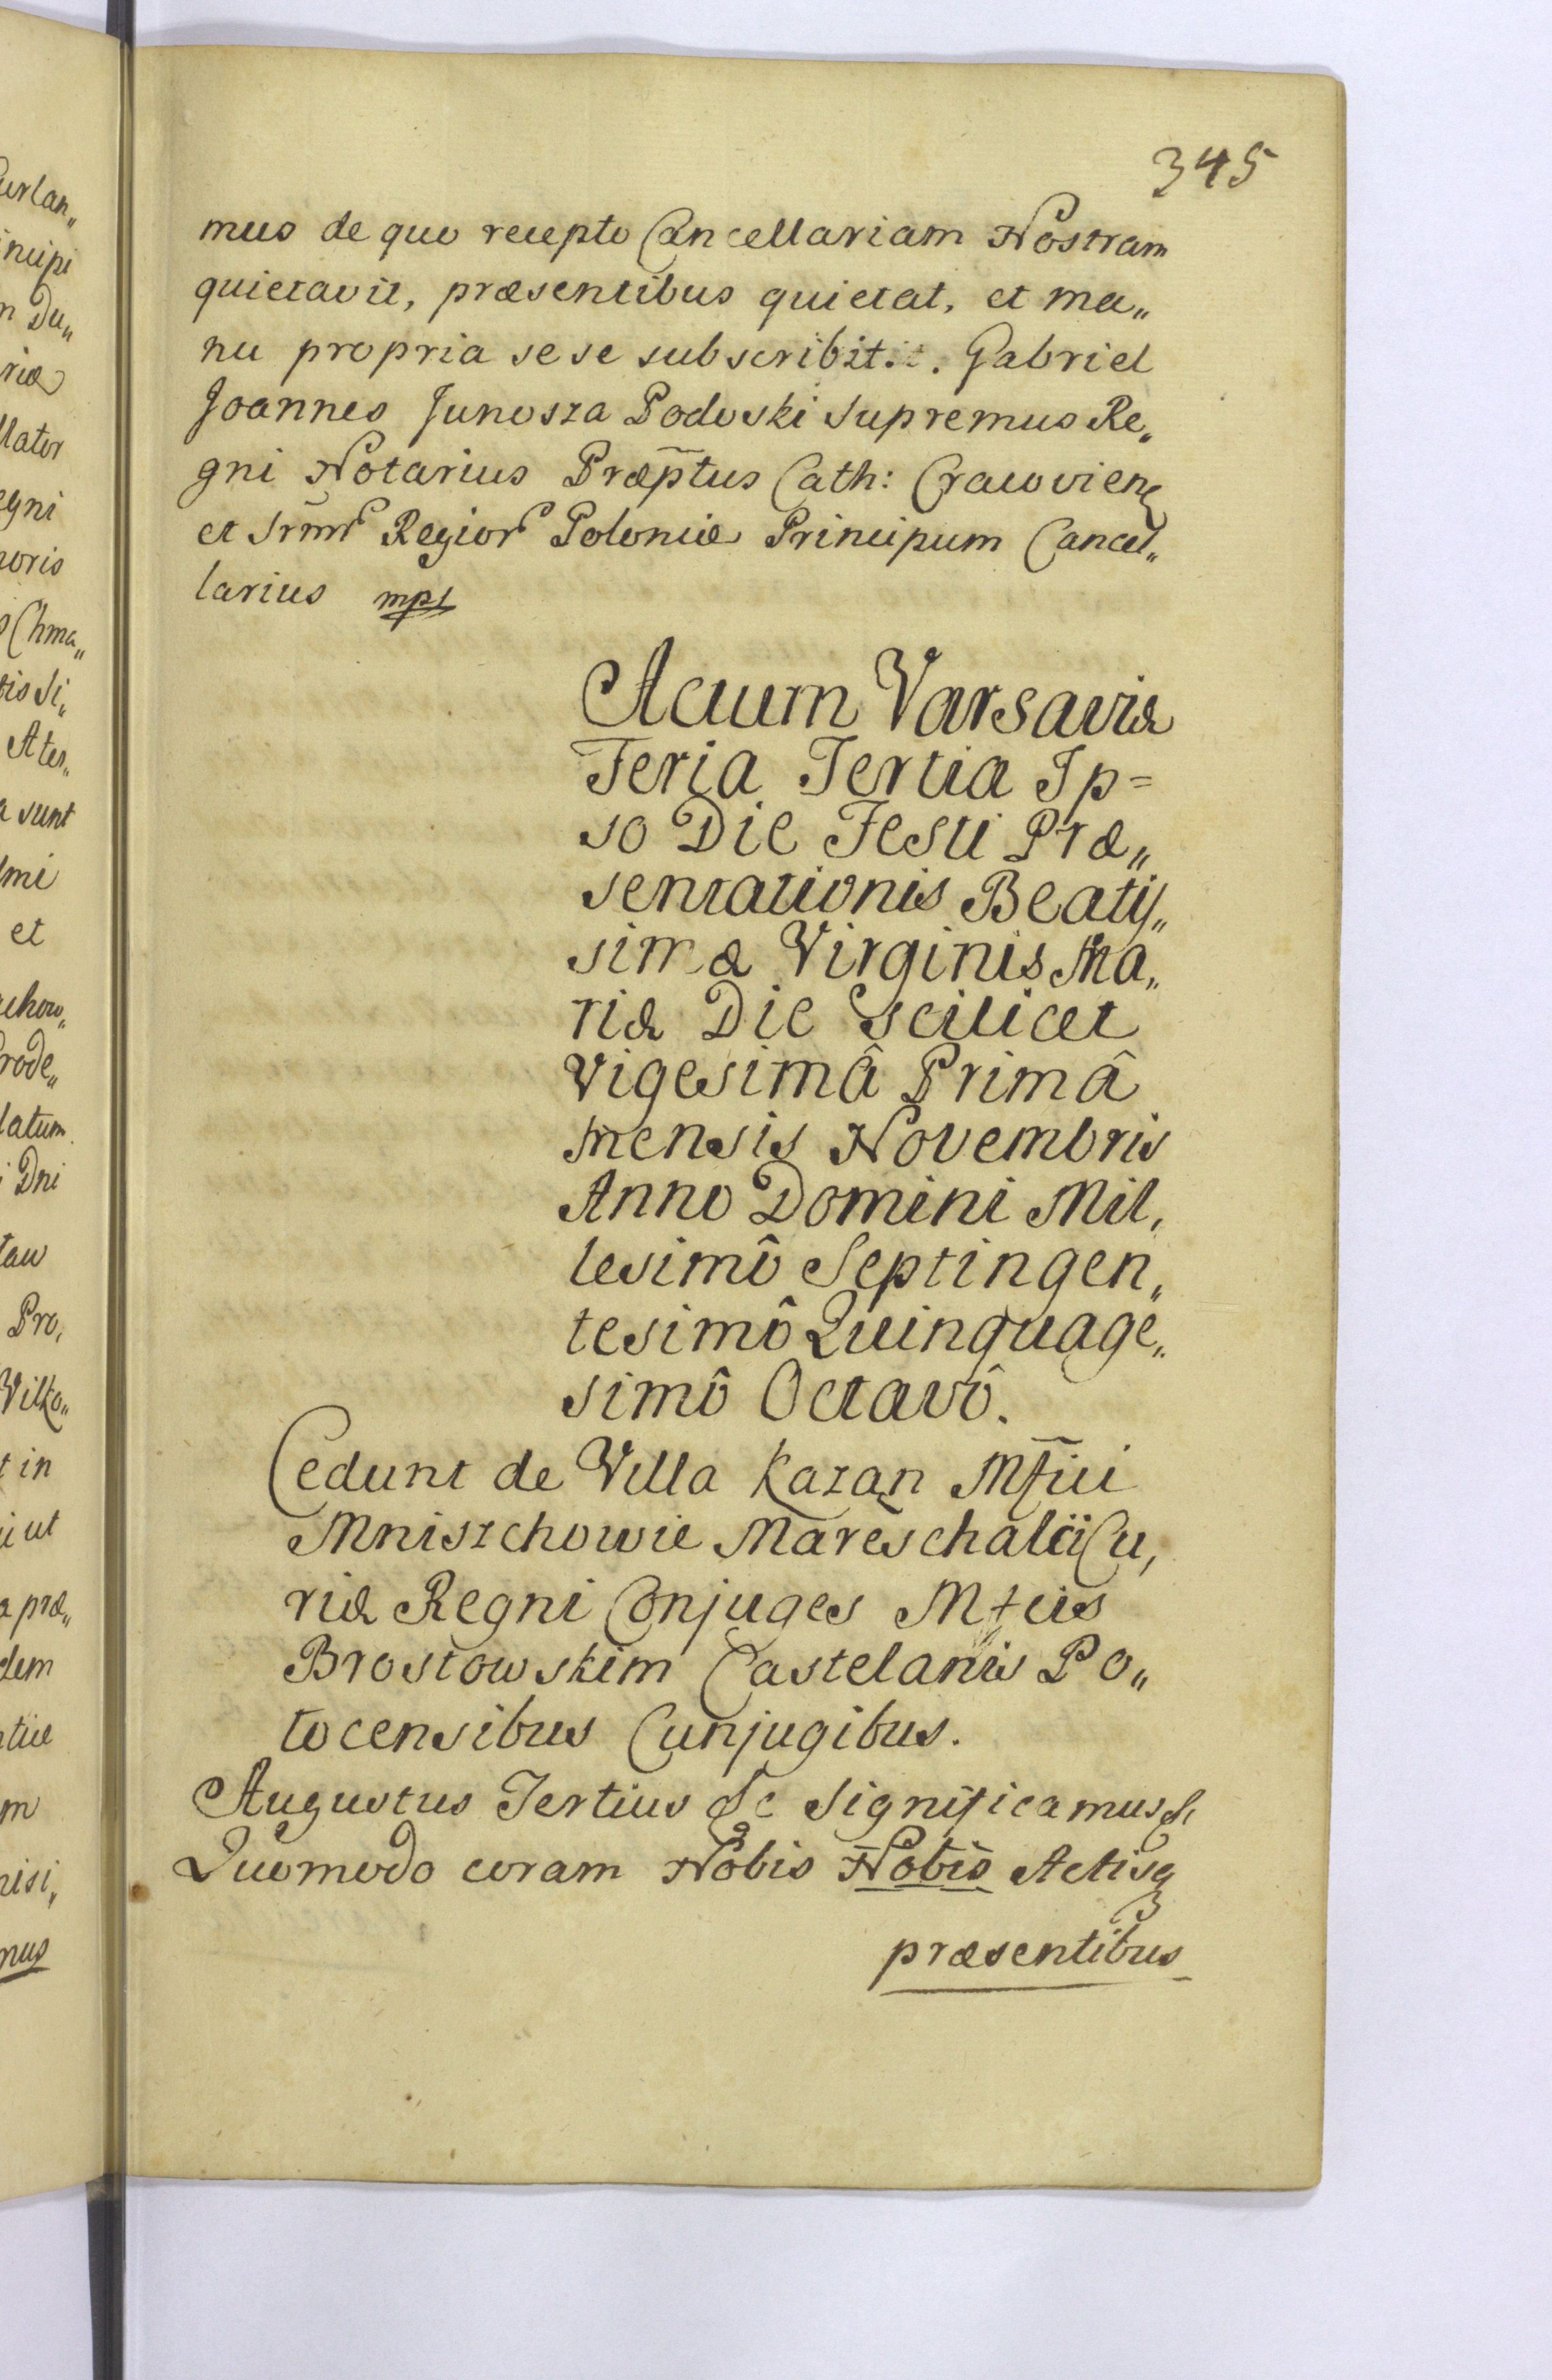 345
mus de quo recepto Cancellariam Nostram
quietavit, præsentibus quietat, et ma„
nu propria sese subscribit. Gabriel
Joannes Junosza Podoski Supremus Re„
gni Notarius Præptus Cath: Cracovien
et Srmr Regior Poloniæ Principum Cancel„
larius mp
Actum Varsaviæ
Feria Tertia Ip=
so Die Festi Præ„
sentationis Beatis„
simæ Virginis Ma„
riæ Die Scilicet
Vigesimâ Primâ
Mensis Novembris
Anno Domini Mil„
lesimô Septingen„
tesimô Quinquage„
simô Octavô.
Cedunt de Villa Kazan Mfici
Mniszchowie Mareschalci Cu„
riæ Regni Conjuges Mfcis
Brostowskim Castelanis Po„
tocensibus Cunjugibus.
Augustus Tertius &c Significamus &c
Quomodo coram Nobis Nobis Actisq
præsentibus
urlan„
ncipi
n Du„
riæ
llator
egni
noris
Chma„
tis Si„
Ater„
a sunt
lmi
et
chow„
rode„
latum
i Dni
taw
Pro„
Wilko„
t in
i ut
a præ„
dem
ntiæ
m
nisi„
mus